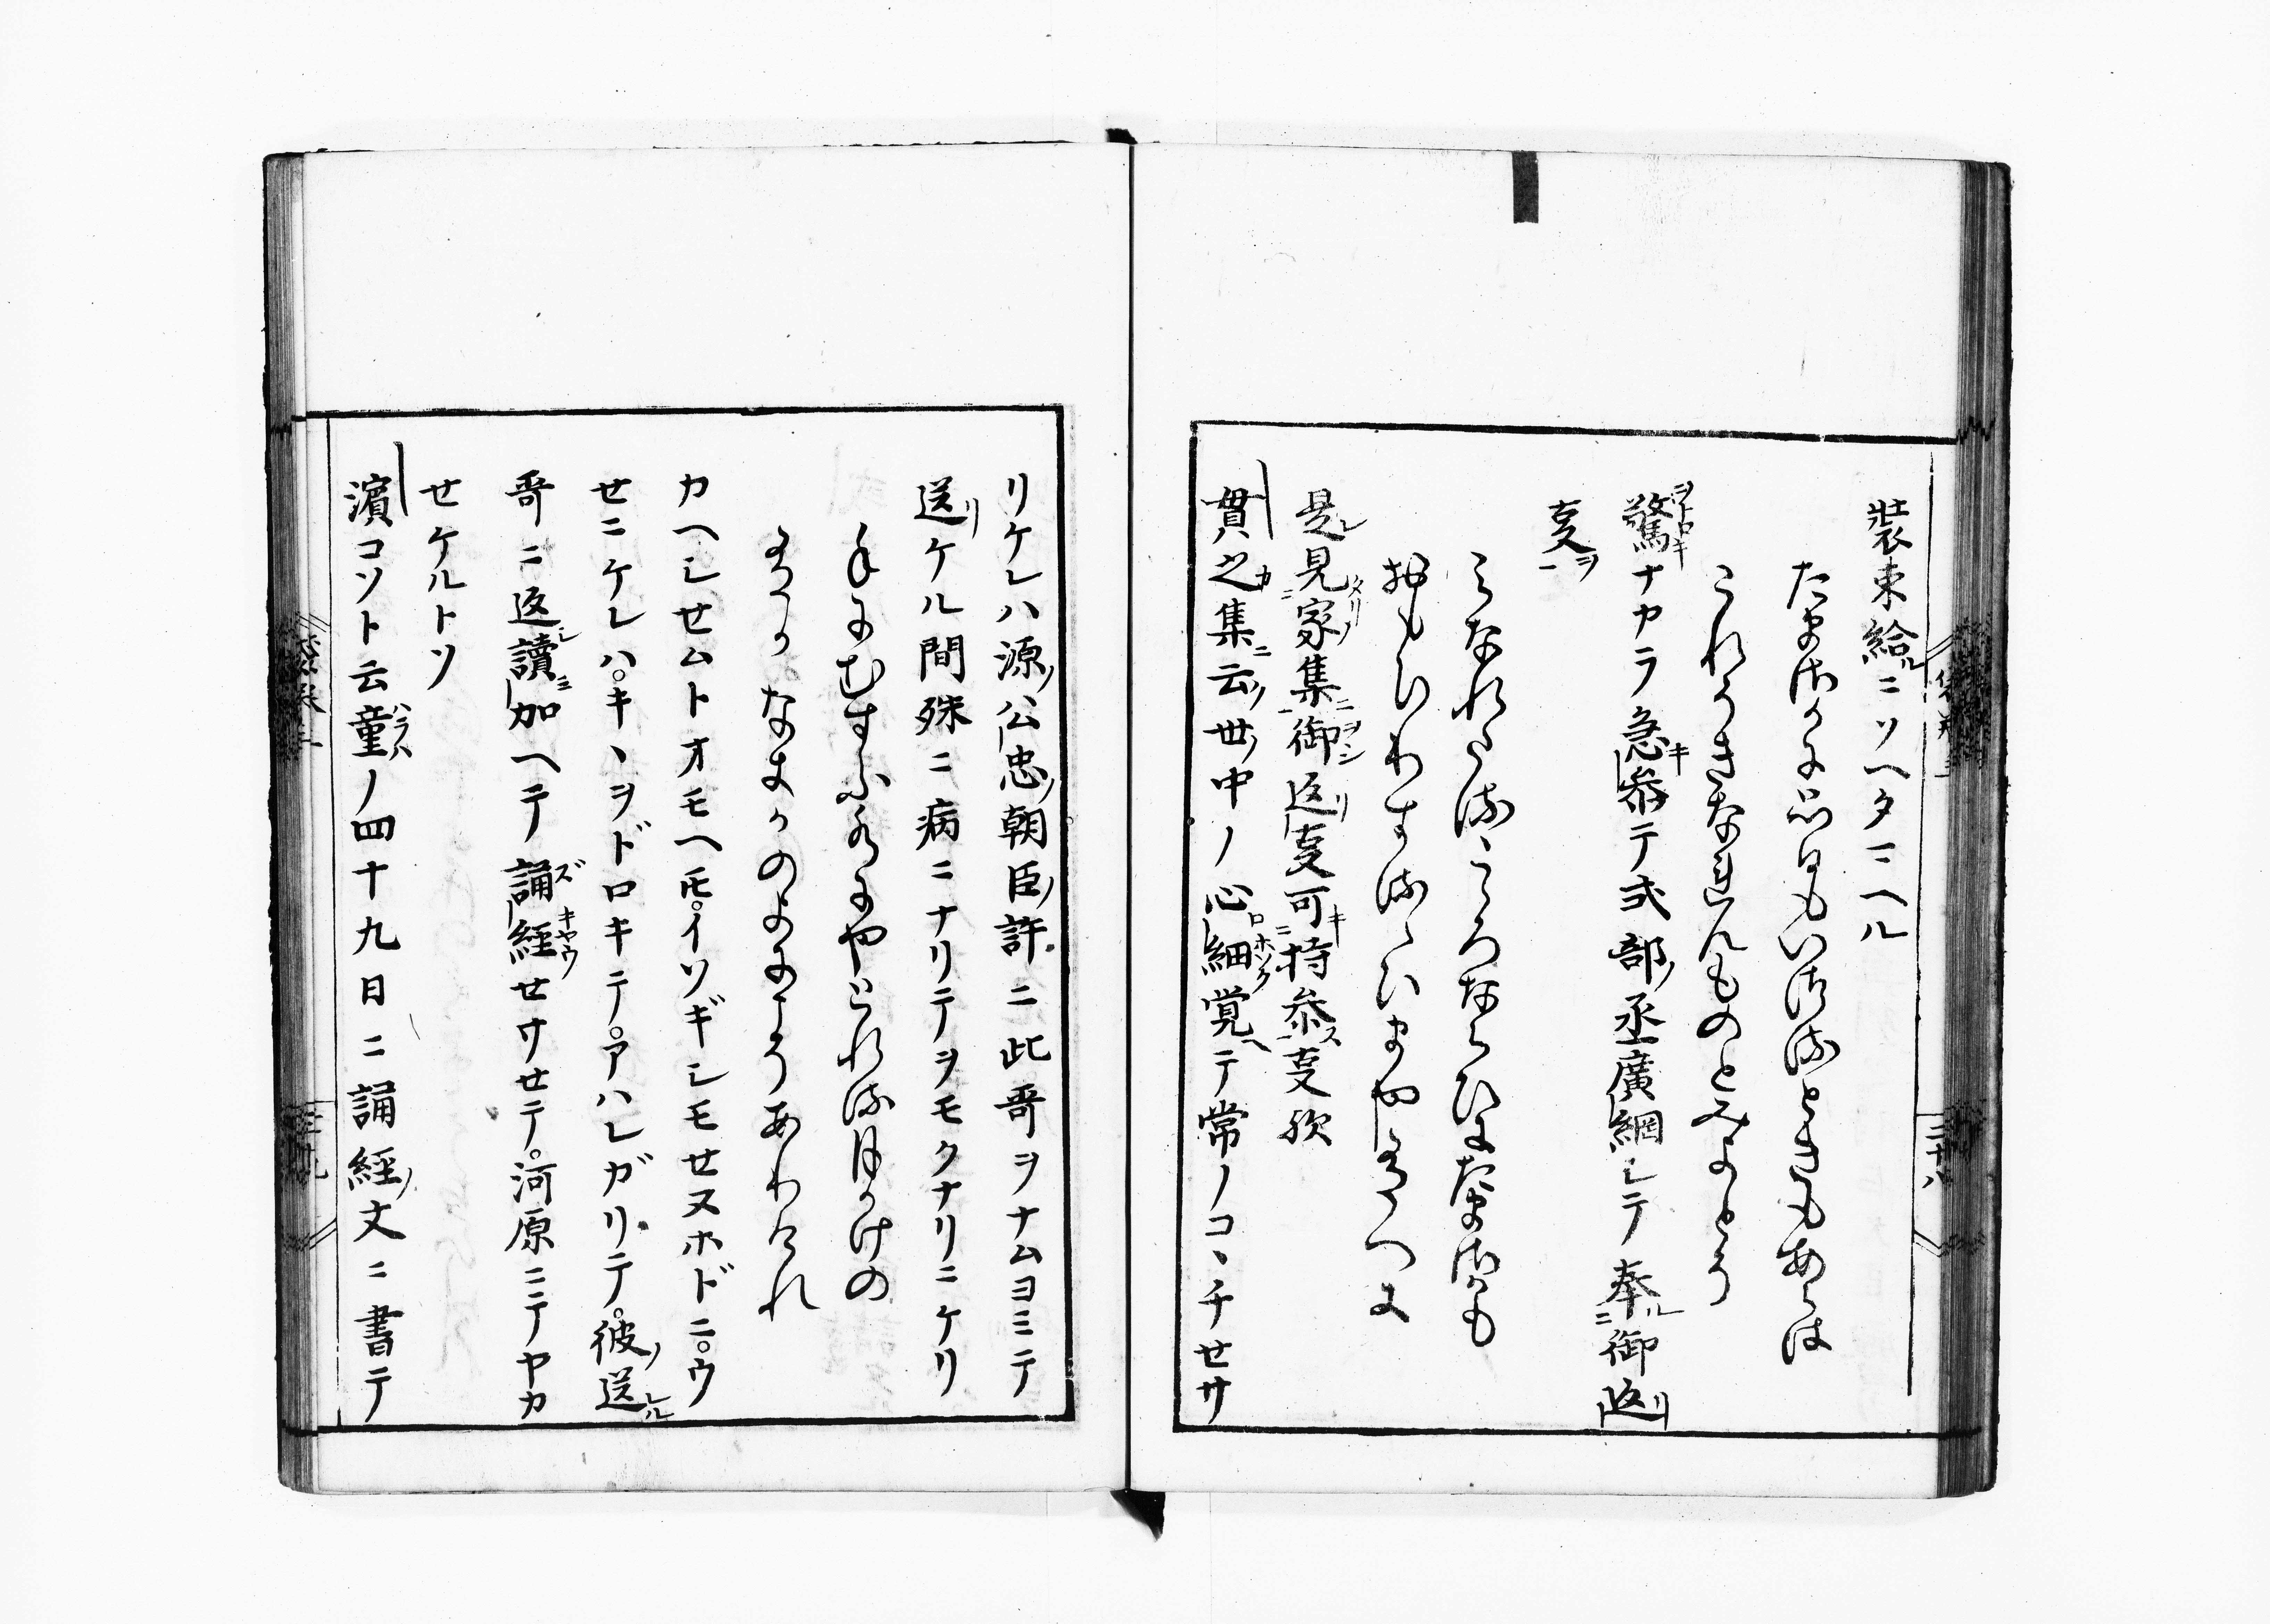 装束給ルニソヘタマヘル
たまさかに思ひもいつるときもあらは
これうきなきんものとみよとう
驚ナカラ急キ参テ式部ノ丞廣綱シテ奉ル御返リ
事ヲ
みなれたるころならひにたまさかも
おもひわするゝひまやなへに
是レ見タリ家ノ集ニ御返リ事可キ持参ス事欤
貫之カ集ニ云ノ世ノ中ノ心細ク覚ヘテ常ノコヽチセサ
リケレハ源ノ公忠ノ朝臣ノ許ニ此哥ヲナムヨミテ
送リケル間殊ニ病ニナリテヲモクナリニケリ
手にむすふ水にやとれる月かけの
あるかなきかのよにこそありけれ
カヘシセムトオモヘモイソギシモセヌホドニウ
セニケレハキヽヲドロキテアハレガリテ彼ノ送レル
哥ニ返シ讀ミ加ヘテ誦経セサセテ河原ニテヤカ
セケルトソ
濱コソト云童ノ四十九日ニ誦経ノ文ニ書テ